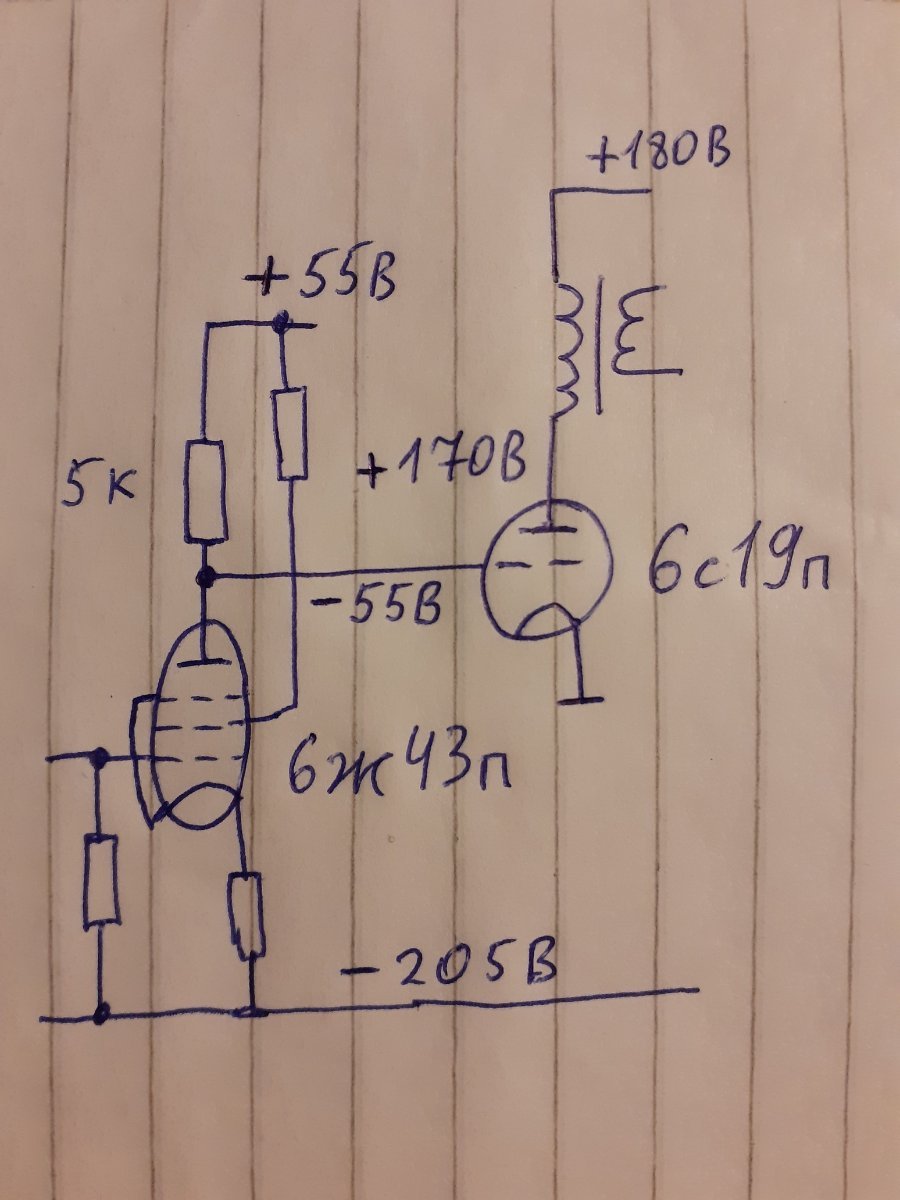 +180В
+55В
+170В
5к
6с19п
-55В
6ж43п
-205В